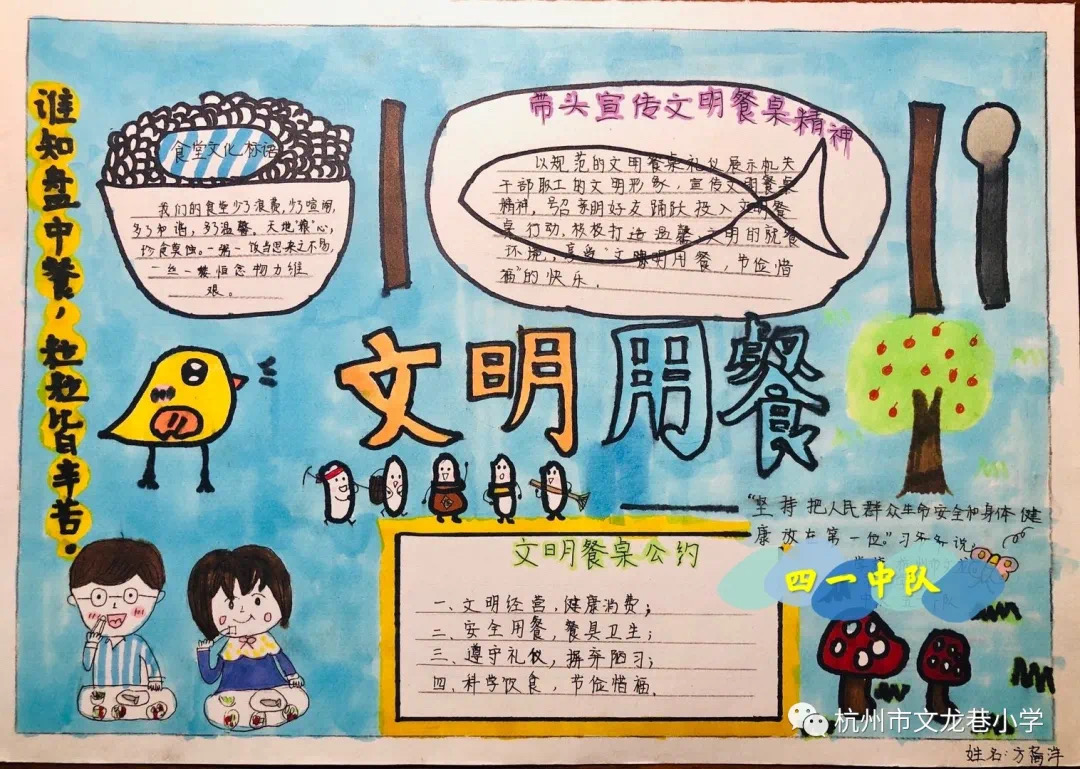 谁知盘中餐，粒粒皆辛苦。
食堂文化标语
我们的食堂少了浪费，少了喧闹，
多了和谐，多了温馨。天地"粮"心，
珍食莫蚀。一粥一饭当思来之不易，
一丝一缕恒念物力维
艰。
带头宣传文明餐桌精神
以规范的文明餐桌礼仪展示机关
干部职工的文明形象，宣传文明餐桌
精神，号召亲朋好友踊跃投入文明餐
桌行动，积极打造温馨、文明的就餐
环境，享受"文明用餐，节俭惜
福"的快乐．
文明用餐
"坚持把人民群众生命安全和身体健
康放在第一位。"习
四一中队
文明餐桌公约
一、文明经营，健康消费；
二、安全用餐，餐具卫生；
三、遵守礼仪，摒弃陋习；
四、科学饮食，节俭惜福．
杭州市文龙巷小学
姓名：方